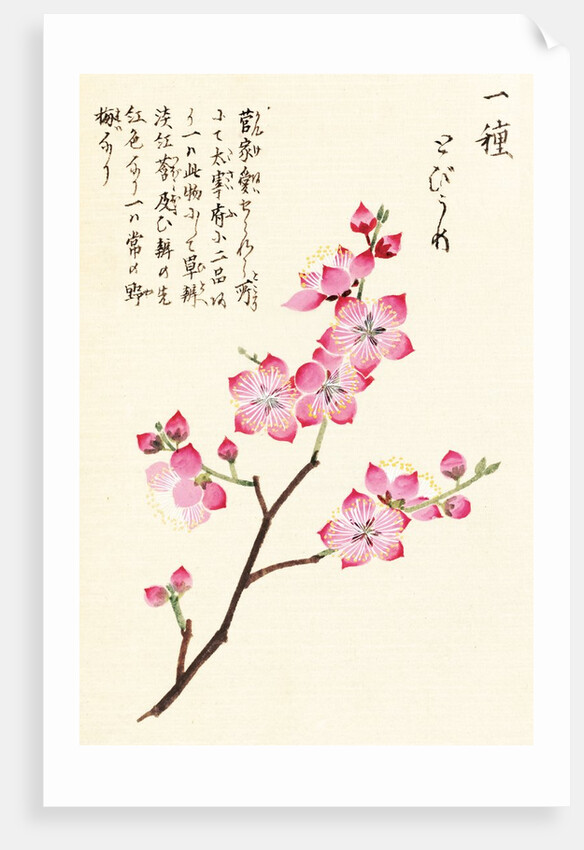 一種
とびうめ
菅家愛せられし所
にて太宰府に二品あ
り一ハ此物にして単瓣
淡紅蕚及ひ瓣の先
紅色なり一ハ常の野
梅なり